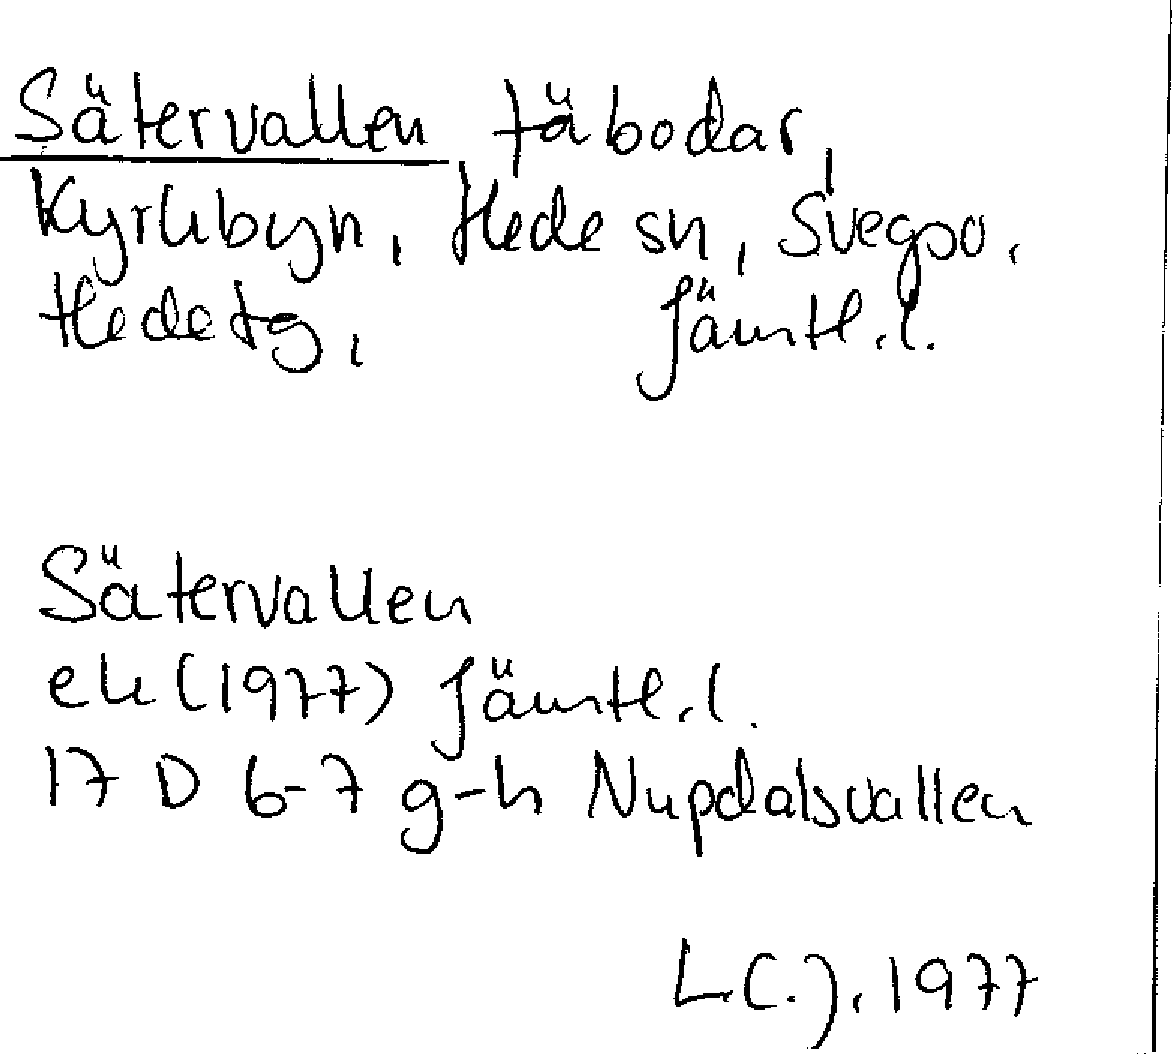 Sätervallen fäbodar,
Kyrkbyn, Hede sn, Svegso.
Hede tg, Jämtl.l.
Sätervallen
ek (1977) Jämtl.l.
17 D 6-7 g-h Nupdalsvallen
L.C.J. 1977